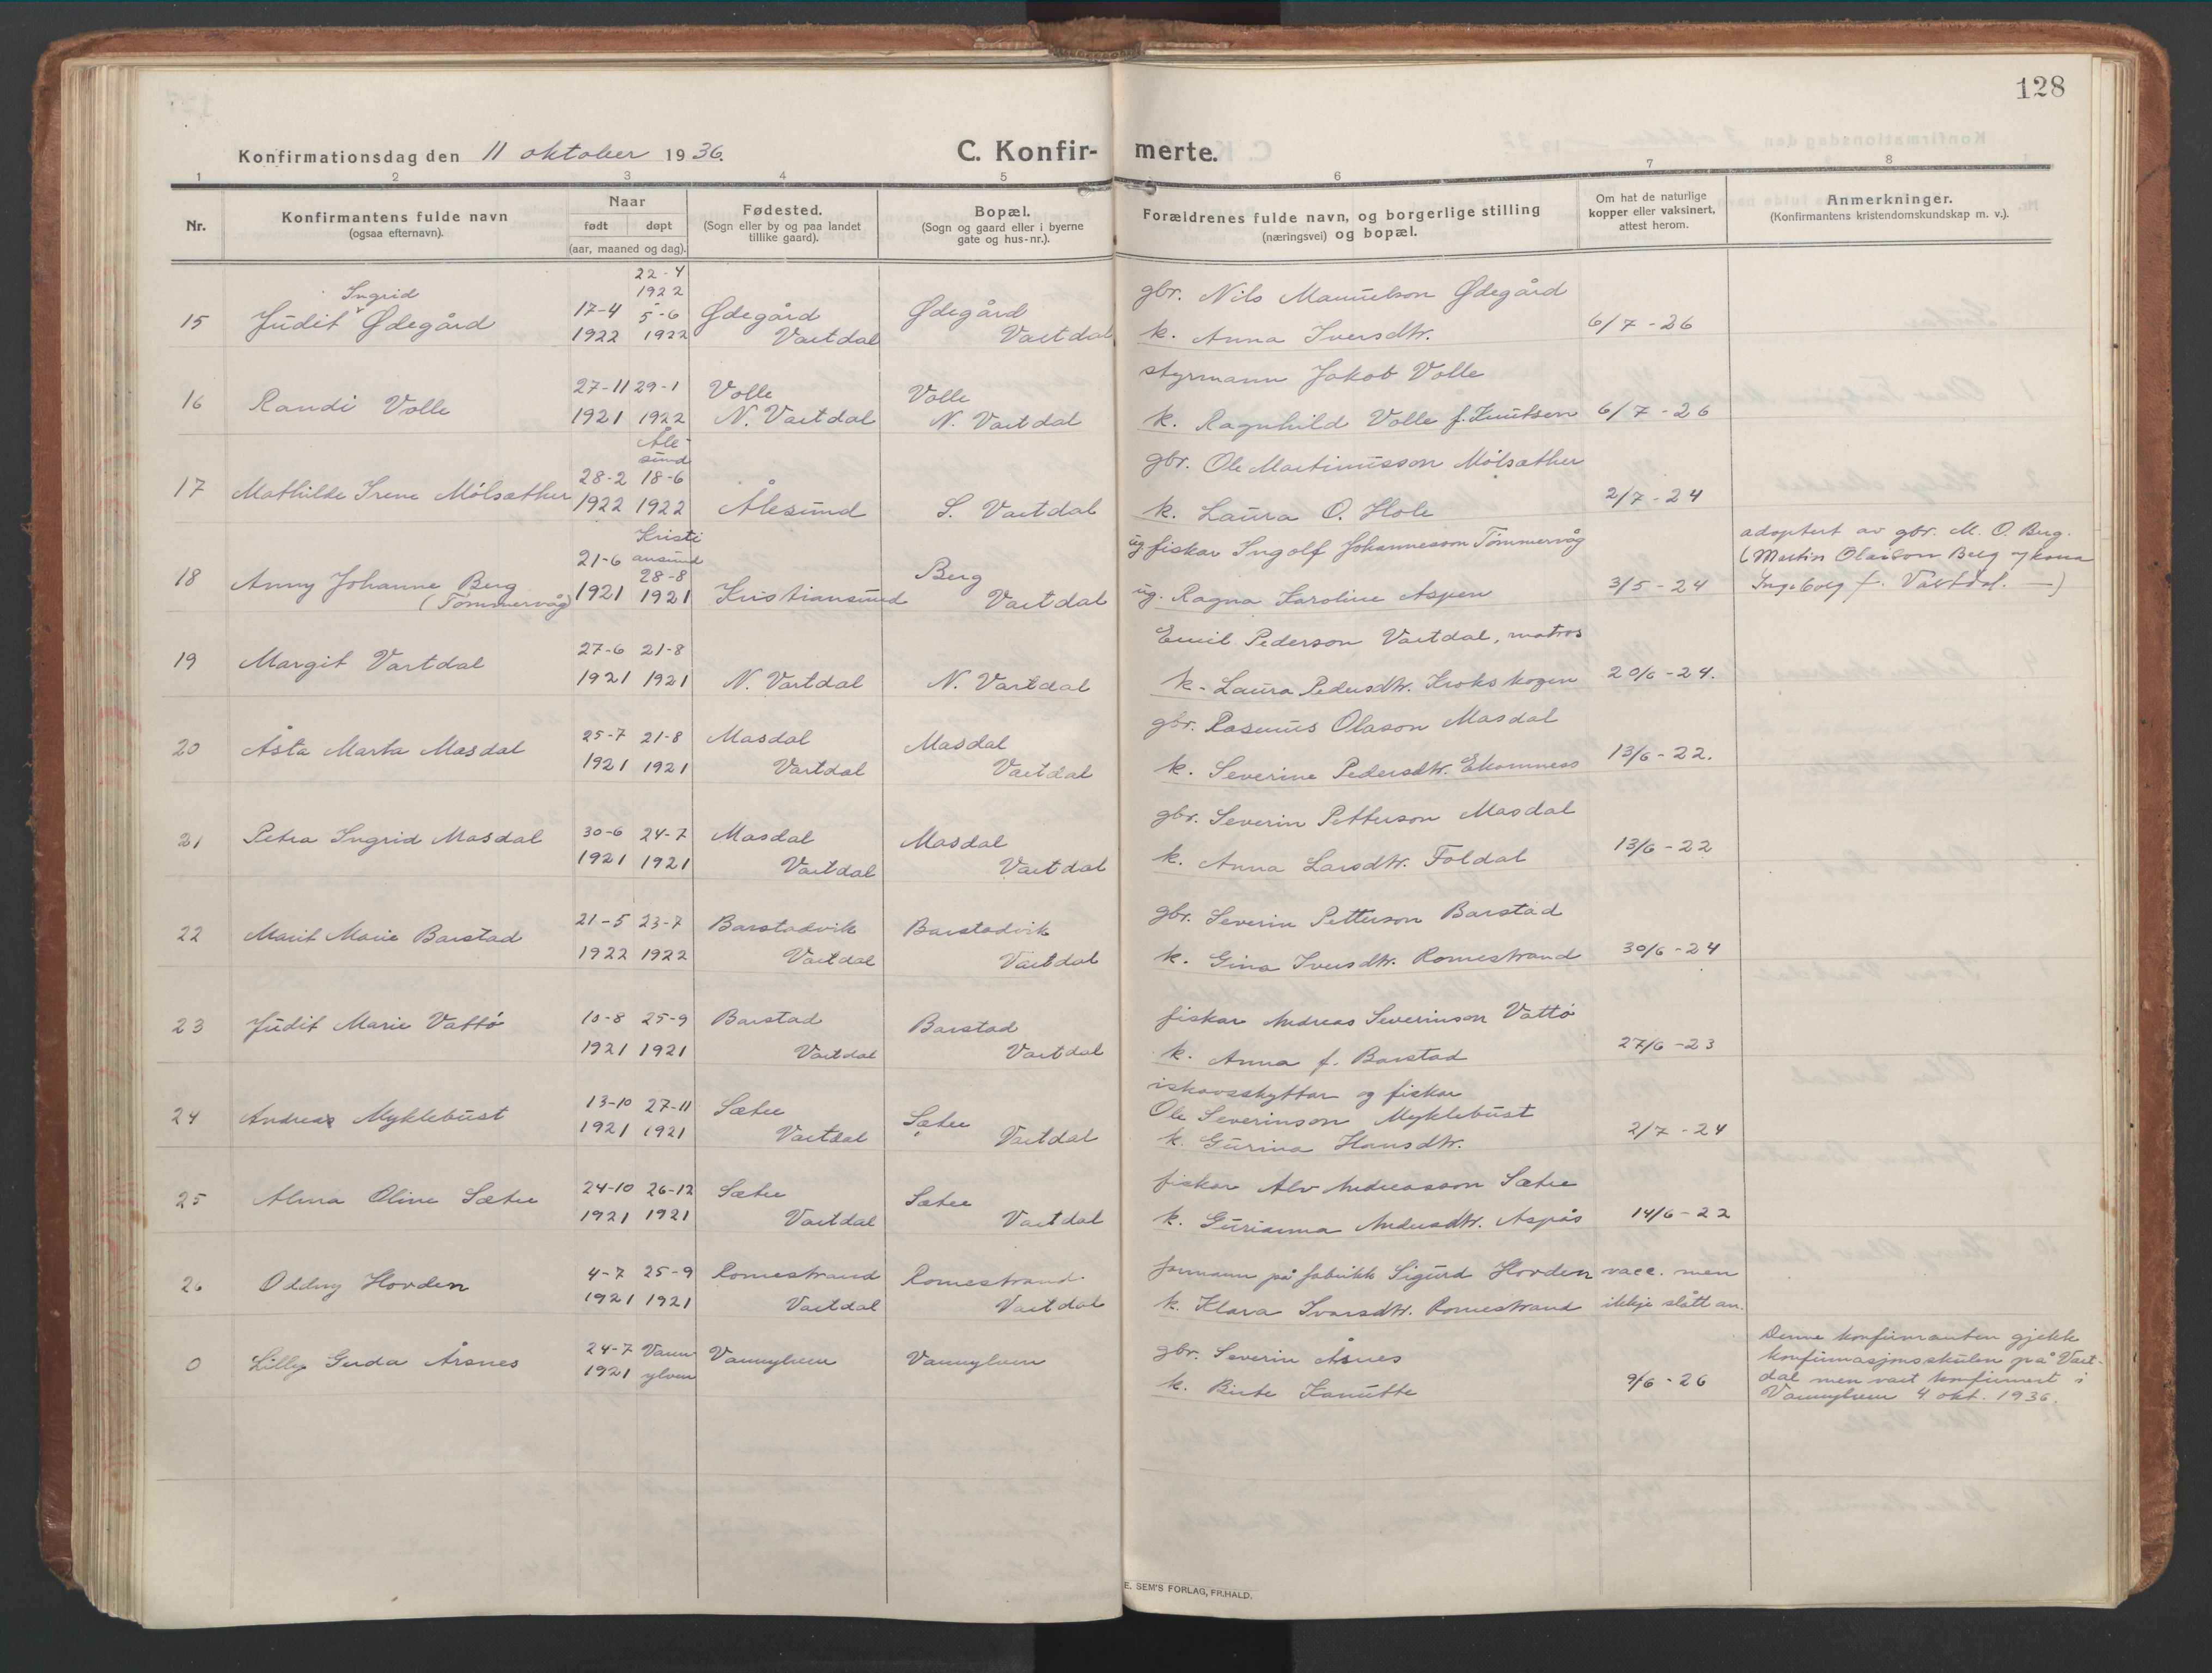 128
Konfirmationsdag den 11 oktober 1936.
C. Konfir- merte.
1 2 3 4 5 6 7 8
Nr.
Konfirmantens fulde navn
(ogsaa efternavn).
Naar
født døpt
(aar, maaned og dag).
Fødested.
(Sogn eller by og paa landet
tillike gaard).
Bopæl.
(Sogn og gaard eller i byerne
gate og hus-nr.).
Forældrenes fulde navn, og borgerlige stilling
(næringsvei) og bopæl.
Om hat de naturlige
kopper eller vaksinert,
attest herom.
Anmerkninger.
(Konfirmantens kristendomskundskap m. v.).
22-4
1922
Ingrid
15 Judit Ødegård 17-4 1922 5-6 1922 Ødegård Vartdal Ødegård Vartdal
gbr. Nils Manuelson Ødegård
k. Anna Iversdtr. 6/7-26
16 Randi Volle 27-11 1921 29-1 1922 Volle N. Vartdal Volle N. Vartdal
styrmann Jakob Volle
k. Ragnhild Volle f. Knutsen 6/7-26
17 Mathilde Irene Mólsæther 28-2 1922 Ålesund 18-6 1922 Ålesund S. Vartdal
gbr. Ole Martinusson Mólsæther
k. Laura O. Hole 2/7-24
18 Anny Johanne Berg
(Tømmervåg) 21-6 1921 Kristiansund 28-8 1921 Kristiansund Berg Vartdal
ug. fiskar Ingolf Johannesson Tømmervåg
ug. Ragna Karoline Aspen 3/5-24
adoptert av gbr. M. O. Berg.
(Martin Olaison Berg og kona
Ingeborg f. Vartdal. —)
19 Margit Vartdal 27-6 1921 21-8 1921 N. Vartdal N. Vartdal
Emil Pederson Vartdal, matros
k. Laura Pedersdtr. Krokskogen 20/6-24.
20 Åsta Marta Masdal 25-7 1921 21-8 1921 Masdal Vartdal Masdal Vartdal
gbr. Rasmus Olason Masdal
k. Severine Pedersdtr. Ekornness 13/6-22.
21 Petra Ingrid Masdal 30-6 1921 24-7 1921 Masdal Vartdal Masdal Vartdal
gbr. Severin Petterson Masdal
k. Anna Larsdtr. Foldal 13/6-22
22 Marit Marie Barstad 21-5 1922 23-7 1922 Barstadvik Vartdal Barstadvik Vartdal
gbr. Severin Petterson Barstad
k. Gina Iversdtr. Romestrand 30/6-24
23 Judit Marie Vattó 10-8 1921 25-9 1921 Barstad Vartdal Barstad Vartdal
fiskar Andreas Severinson Vattó
k. Anna f. Barstad 27/6-23
24 Andreas Myklebust 13-10 1921 27-11 1921 Sætre Vartdal Sætre Vartdal
ishavsskyttar og fiskar
Ole Severinson Myklebust
k. Gurina Hansdtr. 2/7-24
25 Alma Oline Sætre 24-10 1921 26-12 1921 Sætre Vartdal Sætre Vartdal
fiskar Alv Andreasson Sætre
k. Gurianna Andersdtr. Aspås 14/6-22
26 Oddny Hovden 4-7 1921 25-9 1921 Romestrand Vartdal Romestrand Vartdal
formann på fabrikk Sigurd Hovden vacc. men
k. Klara Ivarsdtr. Romestrand ikkje slått an.
0 Lilly Gerda Årsnes 24-7 1921 Vannylven Vannylven Vannylven
gbr. Severin Åsnes
k. Birte Kanutte 9/6-26
Denne konfirmanten gjekk
konfirmasjonsskulen på Vart-
dal men vart konfirmert i
Vannylven 4. okt. 1936.
E. SEM'S FORLAG, FR.HALD.